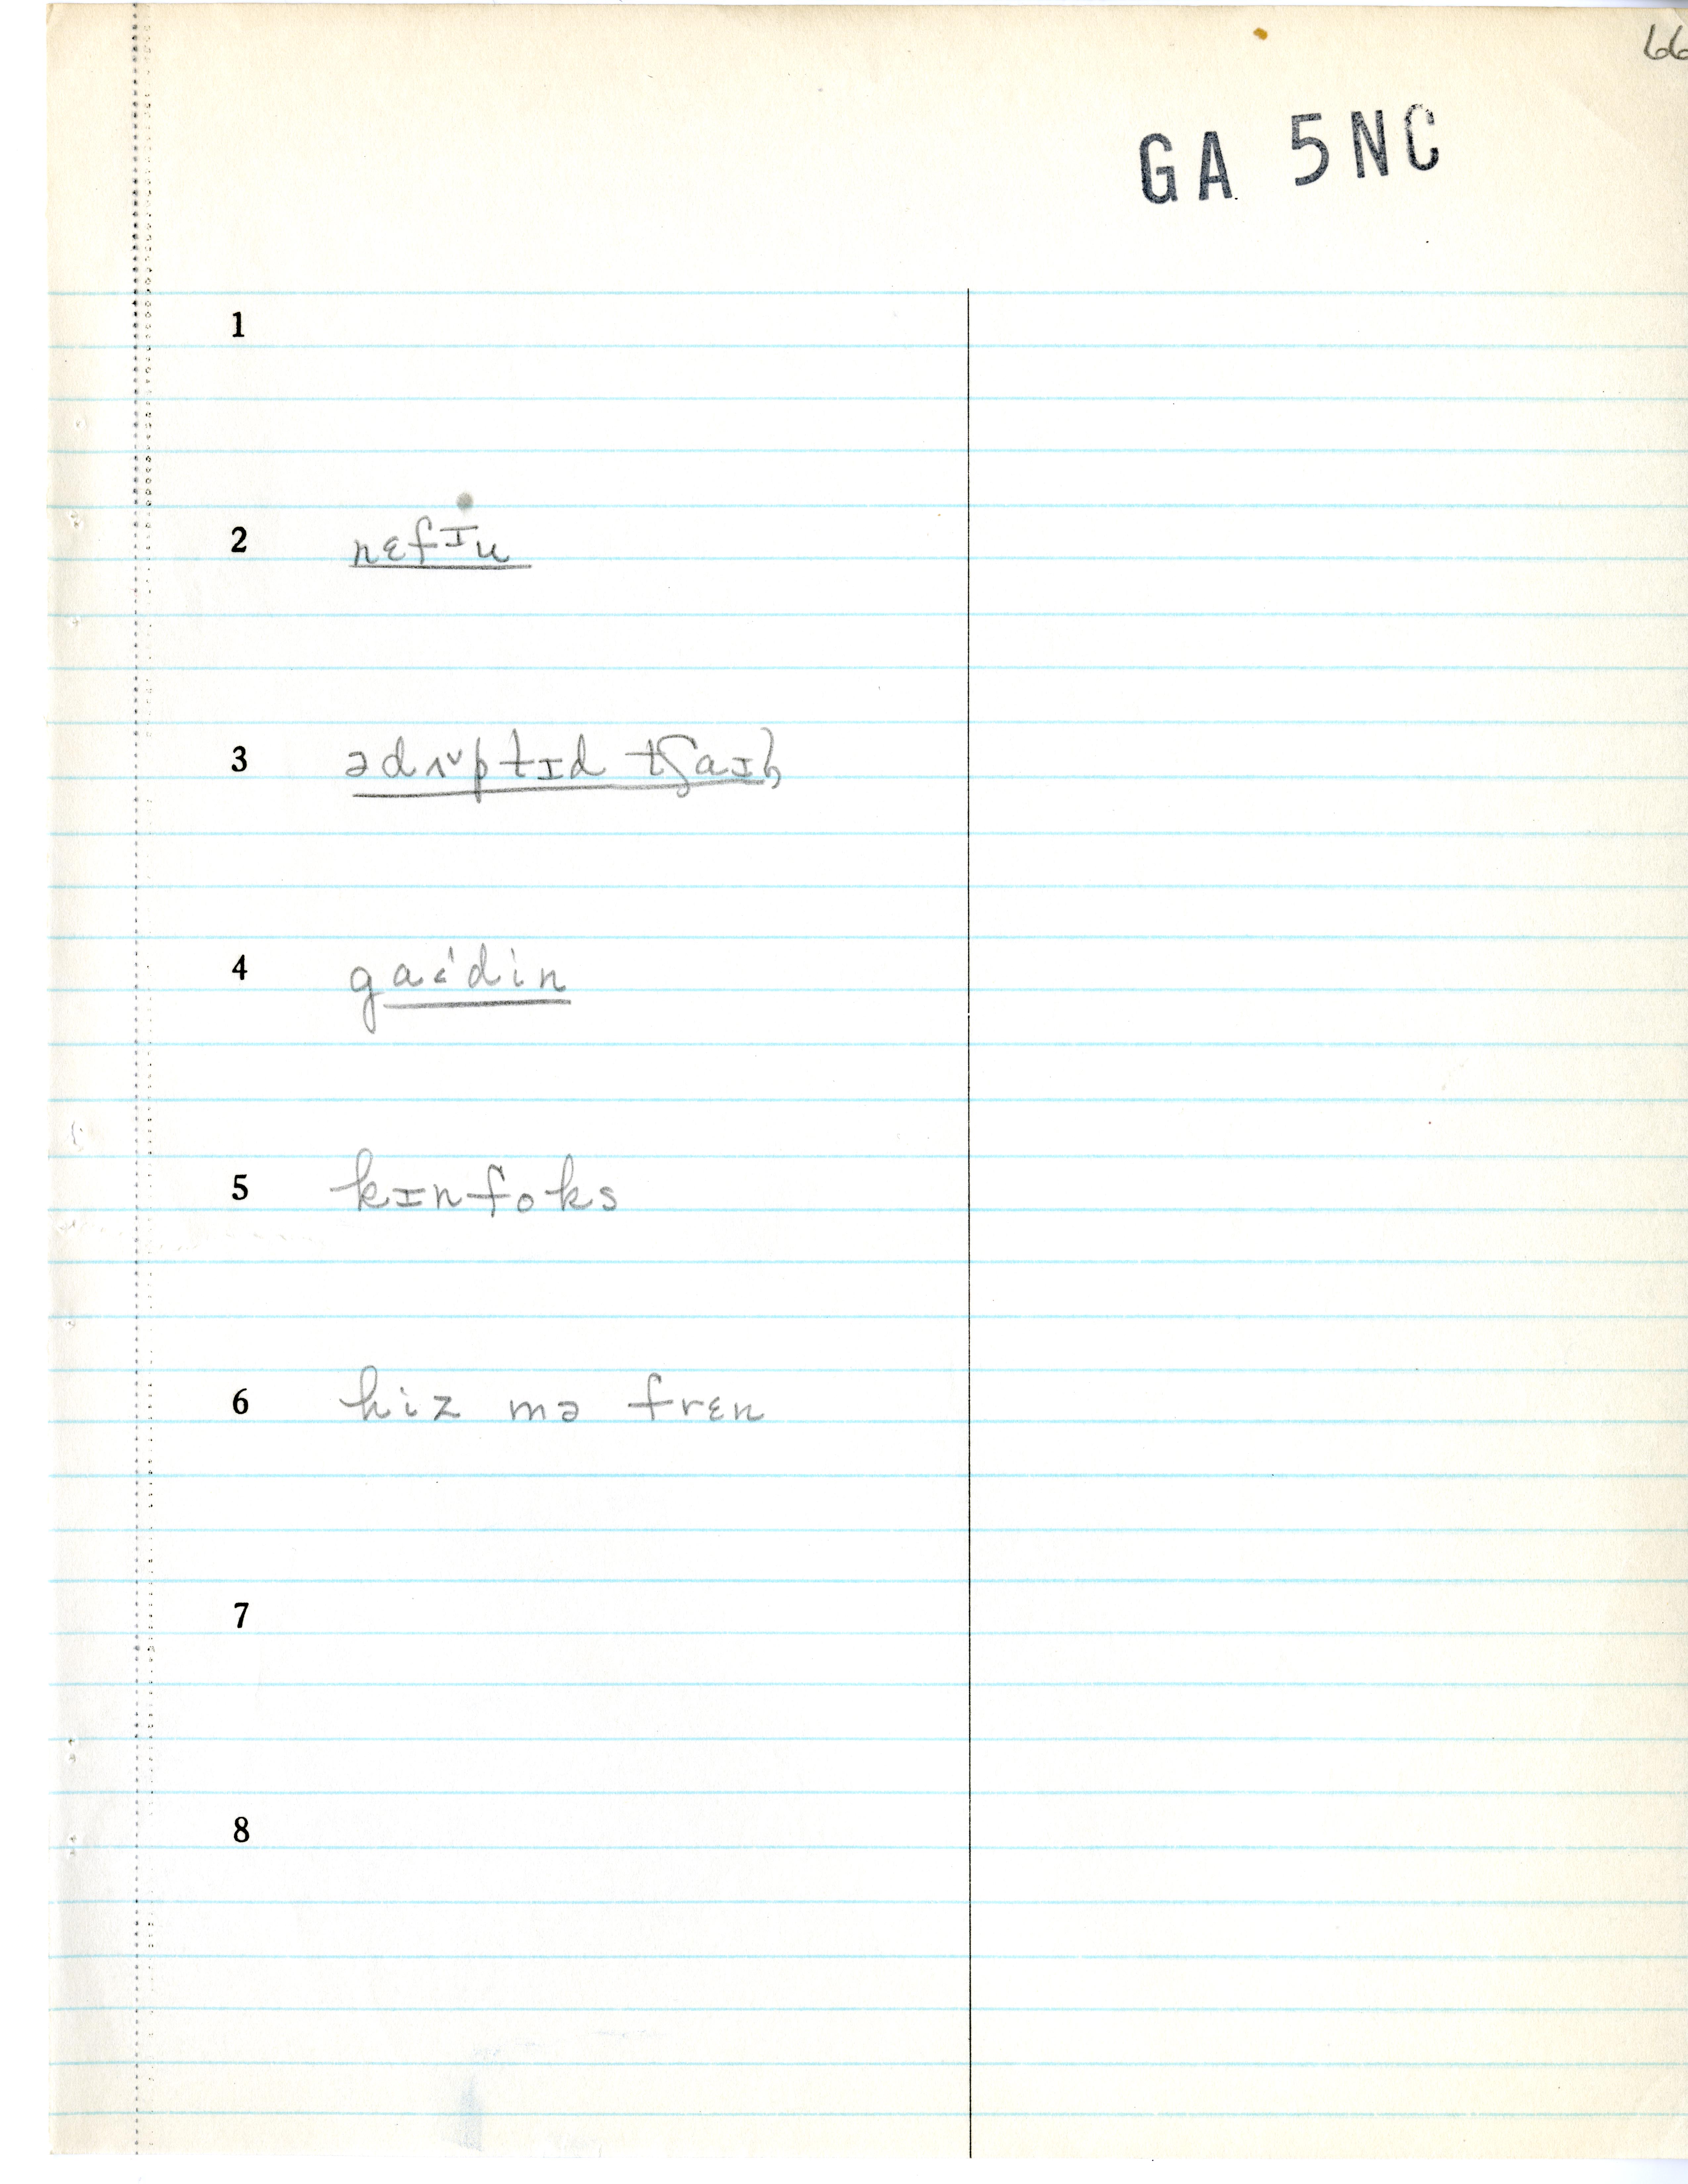 66
GA 5NC
1
2 nɛfɪu
3 ədʌᵛptɪd tʃaɪ
4
5 kɪnfoks
6 hiz mə frɛn
7
8